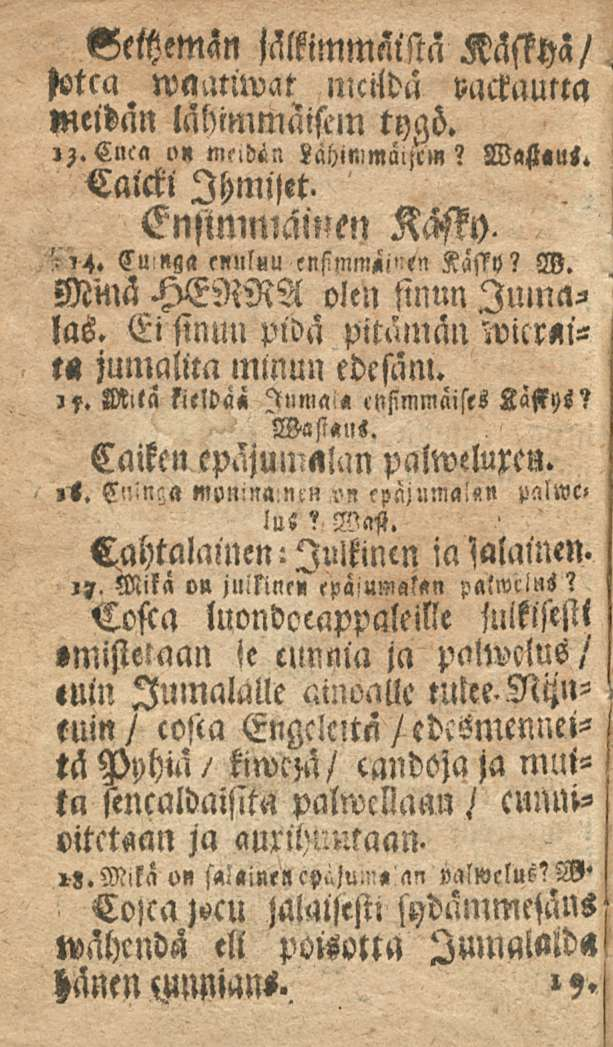 Seitzemän jälkimmäistä Käskyä/
jotca waatiwat meildä rackautta
meidän lähimmäisem tygö.
13. Cuca on meidän Lähimmäisem? Wastaus.
Caicki Ihmiset.
Ensimmäinen Käsky.
14. Cuinga cuuluu ensimmäinen Käsky? W.
Minä HERRA olen sinun Juma⸗
las. Ei sinun pidä pitämän wierai⸗
ta jumalita minun edesäni.
15. Mitä kieldää Jumala ensimmäises Käskys?
Wastaus.
Caiken epäjumalan palweluxen.
16. Cuinga moninainen on epäjumalan palwe⸗
lus? Wast.
Cahtalainen: Julkinen ja salainen.
17. Mikä on julkinen epäjumalan palwelus?
Cosca luondocappaleille julkisesti
omistetaan se cunnia ja palwelus/
cuin Jumalalle ainoalle tulee. Nijn⸗
cuin/ cosca Engeleitä/ edesmennei⸗
tä Pyhiä/ kiwejä/ candoja ja mui⸗
ta sencaldaisita palwellaan/ cunni⸗
oitetaan ja auxihuutaan.
18. Mikä on salainen epäjumalan palwelus? W.
Cosca jocu salaisesti sydämmesäns
wähendä eli poisotta Jumalalda
hänen cunnians.
19.